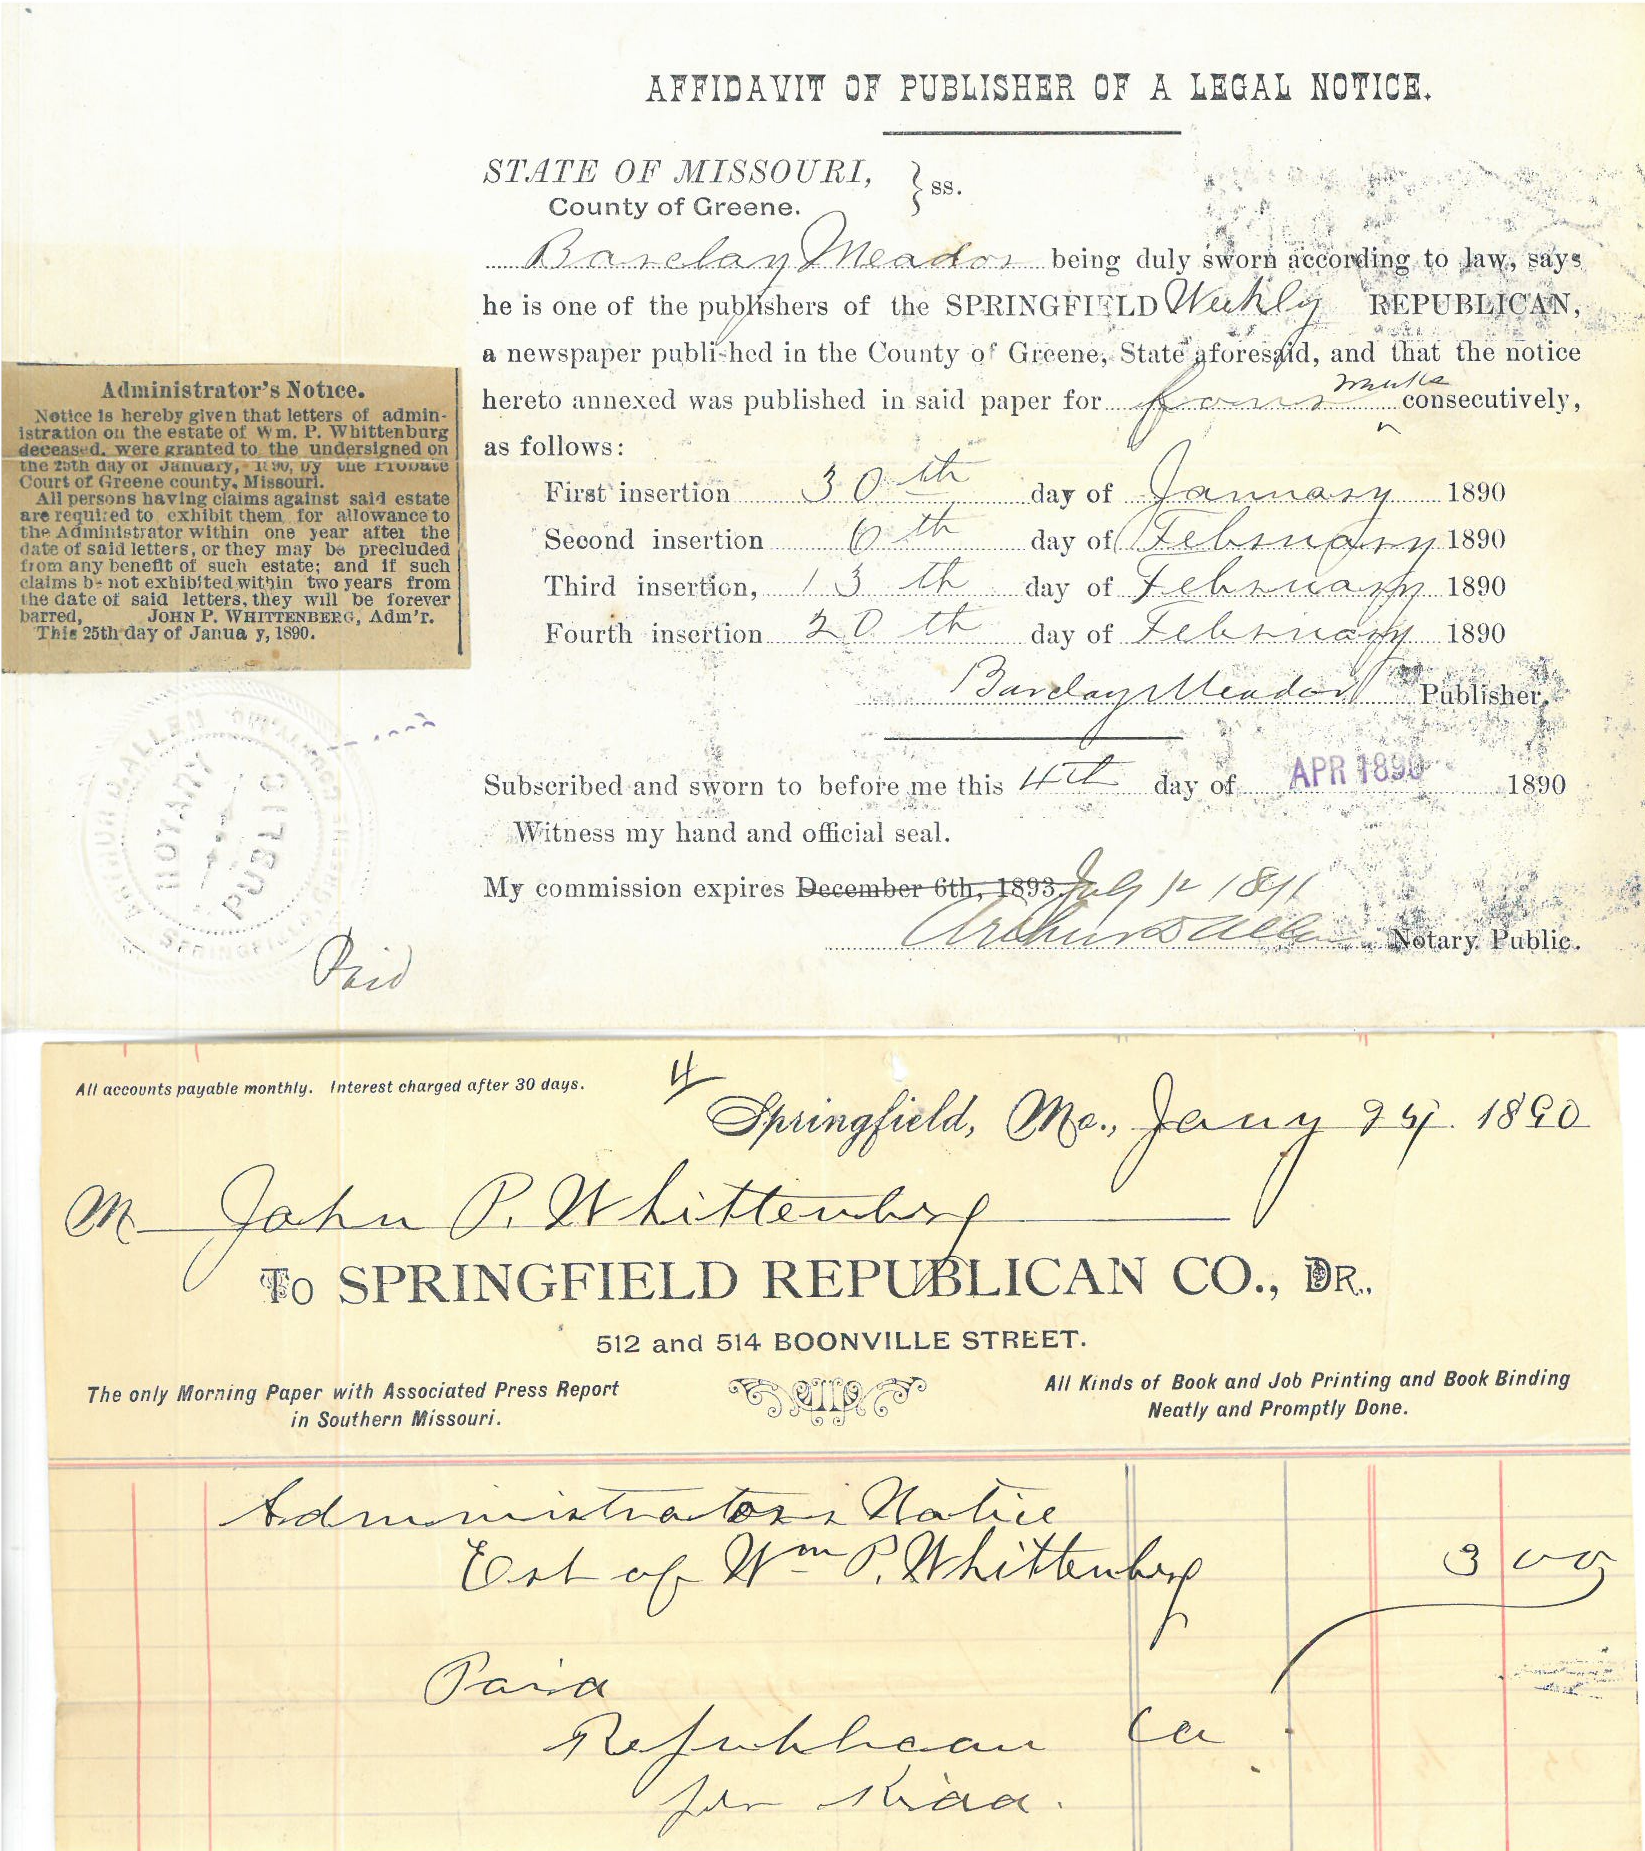 AFFIDAVIT OF PUBLISHER OF A LEGAL NOTICE.
STATE OF MISSOURI, } ss.
County of Greene.
Barclay Meador being duly sworn according to law, says
he is one of the publishers of the SPRINGFIELD Weekly REPUBLICAN,
a newspaper published in the County of Greene, State aforesaid, and that the notice
weeks
hereto annexed was published in said paper for four consecutively,
as follows:
First insertion 30th day of January 1890
Second insertion 6th day of February 1890
Third insertion, 13th day of February 1890
Fourth insertion 20th day of February 1890
Barclay Meador Publisher.
Subscribed and sworn to before me this 4th day of APR 1890 1890
Witness my hand and official seal.
My commission expires December 6th, 1893. July 12 1891
Arthur D Allen Notary Public.
Administrator's Notice.
Notice is hereby given that letters of admin-
istration on the estate of Wm. P. Whittenburg
deceased, were granted to the undersigned on
the 25th day of January, 1890, by the Probate
Court of Greene county, Missouri.
All persons having claims against said estate
are required to exhibit them for allowance to
the Administrator within one year after the
date of said letters, or they may be precluded
from any benefit of such estate; and if such
claims b not exhibited within two years from
the date of said letters, they will be forever
barred, JOHN P. WHITTENBERG, Adm'r.
This 25th day of Janua y, 1890.
ARTHUR D. ALLEN
NOTARY
PUBLIC
SPRINGFIELD
Paid
All accounts payable monthly. Interest charged after 30 days.
4
Springfield, Mo., Jany 24 1890
M John P. Whittenberg
To SPRINGFIELD REPUBLICAN CO., DR.,
512 and 514 BOONVILLE STREET.
The only Morning Paper with Associated Press Report
in Southern Missouri.
All Kinds of Book and Job Printing and Book Binding
Neatly and Promptly Done.
Administrators Notice
Est of Wm P. Whittenberg 3 00
Paid
Republican Co
per Kidd.